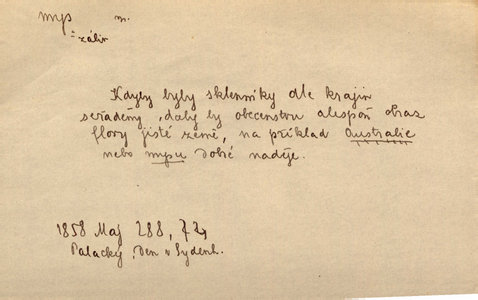 myp m.
= záliv
Kdyby byly sklenníky dle krajin
seřaděny, daly by obecenstvu alespoň obraz
flory jisté země, na příklad Australie
nebo mypu Dobré naděje.
1858 Maj 288, 72,
Palacký, Den v Sydenh.